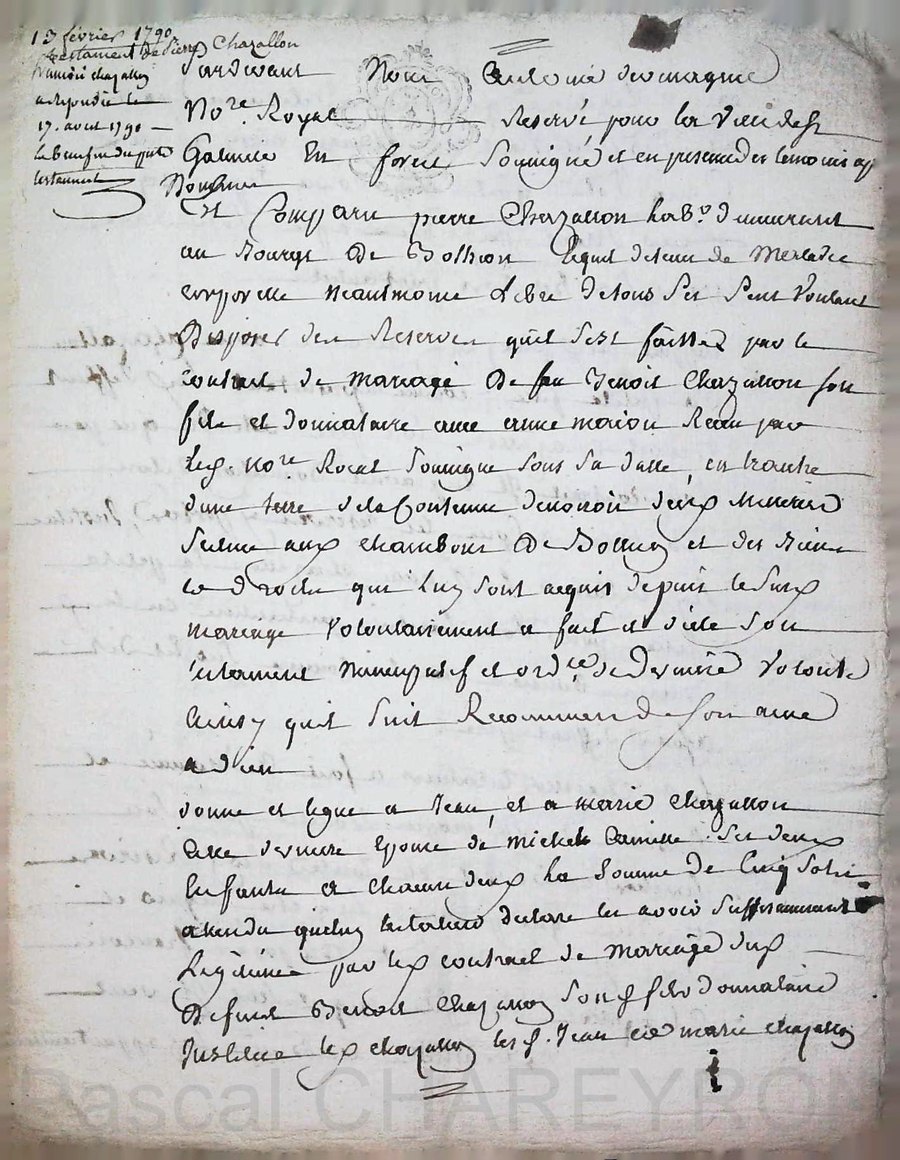 13 février 1790
testament de pierre Chazallon
françois chazallon
a repondu le
17. aout 1790
testament
Pardevant Nous Antoine
No.re Royal reservé pour la ville de St
Galmier En forest Soussigné et en presence des temoins ap
Nommes
Est Comparu pierre Chazallon lab.r demeurant
au Bourg de Bothion lequel detenu de Maladie
corporelle neantmoins Libre de tous ses sens voulant
Disposer des Reserves quil sest faittes par le
contrat de mariage De feu Benoit Chazallon son
fils et donnataire avec anne marion Recu par
le d. no.re Royal Soussigne sous sa datte,
dune terre de la Contenue denviron deux
scituee aux chambons De Bothion et des Biens
et droits qui luy sont acquis depuis le susd
mariage volontairement a fait et dicté son
testament Nuncupatif et ord.ce de Derniere volonté
Ainsy quil suit Recommande son ame
a dieu
donne et legue a Jean, et a marie chazallon
Cette derniere Epouse de Michel Camille ses deux
Enfants a chacun deux la Somme de Cinq sols
attendu quelui testateur declare les avoir suffisamment
Legitimés par led contrat de mariage dud
Defunt Benoit Chazallon Sond fils donnataire
Institue les chazallon lesd. Jean et marie chazallon
Pascal CHAREYRON